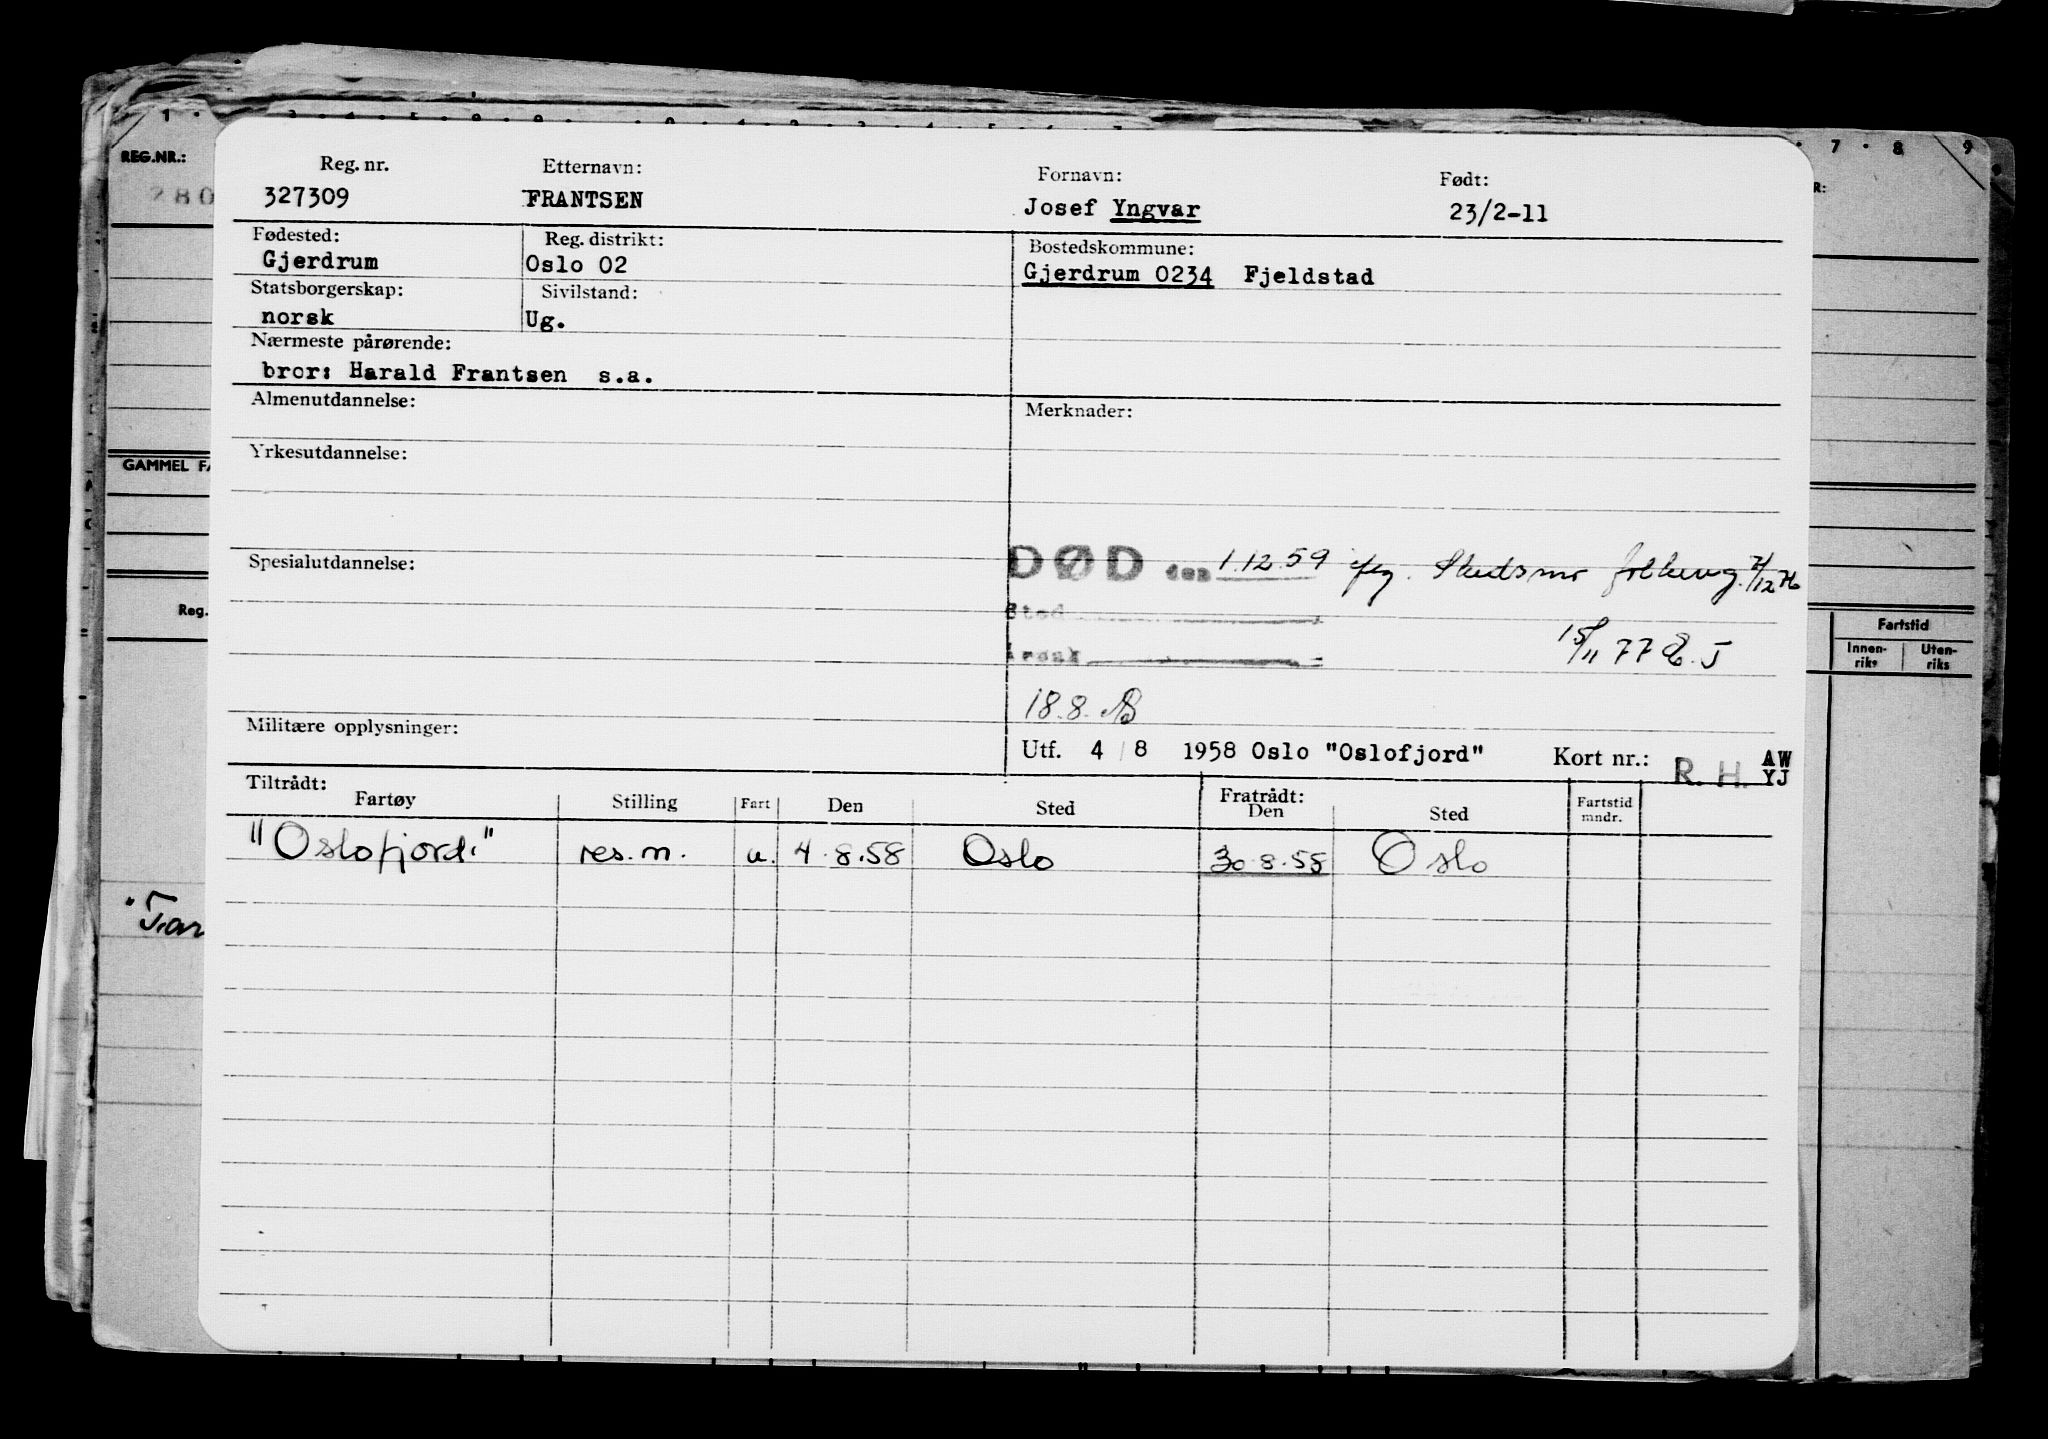 REG.NR.:
280
Reg. nr. Etternavn: Fornavn: Født:
327309 FRANTSEN Josef Yngvar 23/2-11
Fødested: Reg. distrikt: Bostedskommune:
Gjerdrum Oslo 02 Gjerdrum 0234 Fjeldstad
Statsborgerskap: Sivilstand:
norsk Ug.
Nærmeste pårørende:
bror: Harald Frantsen s.a.
Almenutdannelse: Merknader:
Yrkesutdannelse:
GAMMEL FA
Spesialutdannelse:
DØD den 1.12.59 Skedsmo folkereg. 7/12 76
Sted
Årsak
15/11 77
18.8.
Reg.
Fartstid
Innen-riks Uten-riks
Militære opplysninger:
Utf. 4/8 1958 Oslo "Oslofjord" Kort nr.: R. H. AW YJ
Tiltrådt: Fratrådt:
Fartøy Stilling Fart Den Sted Den Sted Fartstid mndr.
"Oslofjord" res.m. u. 4.8.58 Oslo 30.8.58 Oslo